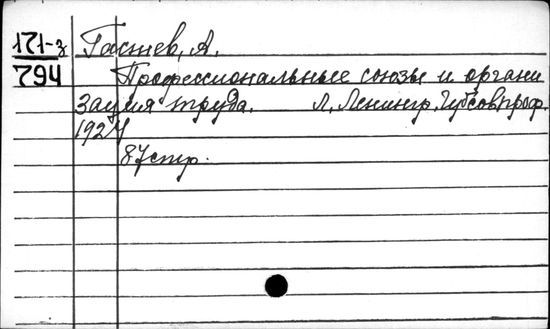 171-з Гастев, А.
794 Профессиональные союзы и органи
зация труда. Л. Ленингр. Губсовпроф.
1924
87 стр.